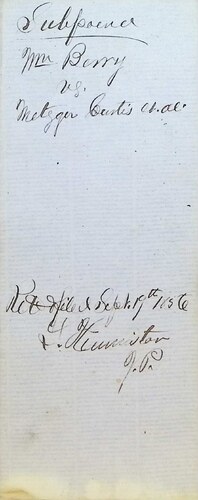 Subpoena
Wm Berry
vs.
Metzger Curtis et. al.
Ret & filed Sept. 19th 1856
Kenniston
J. P.